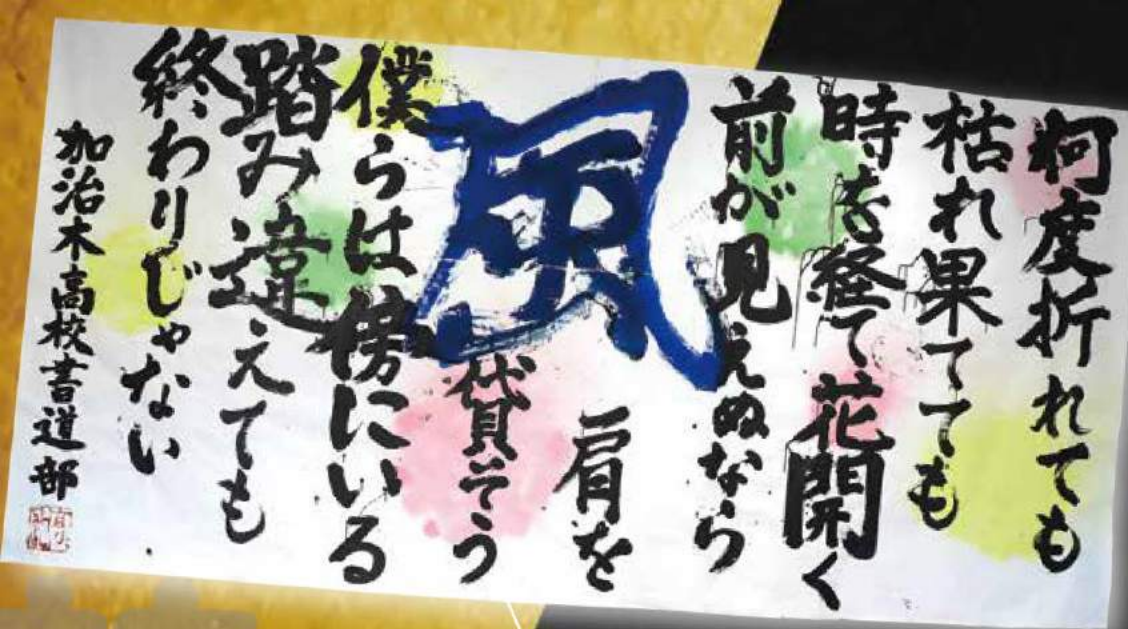 何度折れても
枯れ果てても
時を経て花開く
前が見えぬなら
風
肩を
貸そう
僕らは傍にいる
踏み違えても
終わりじゃない
加治木高校書道部